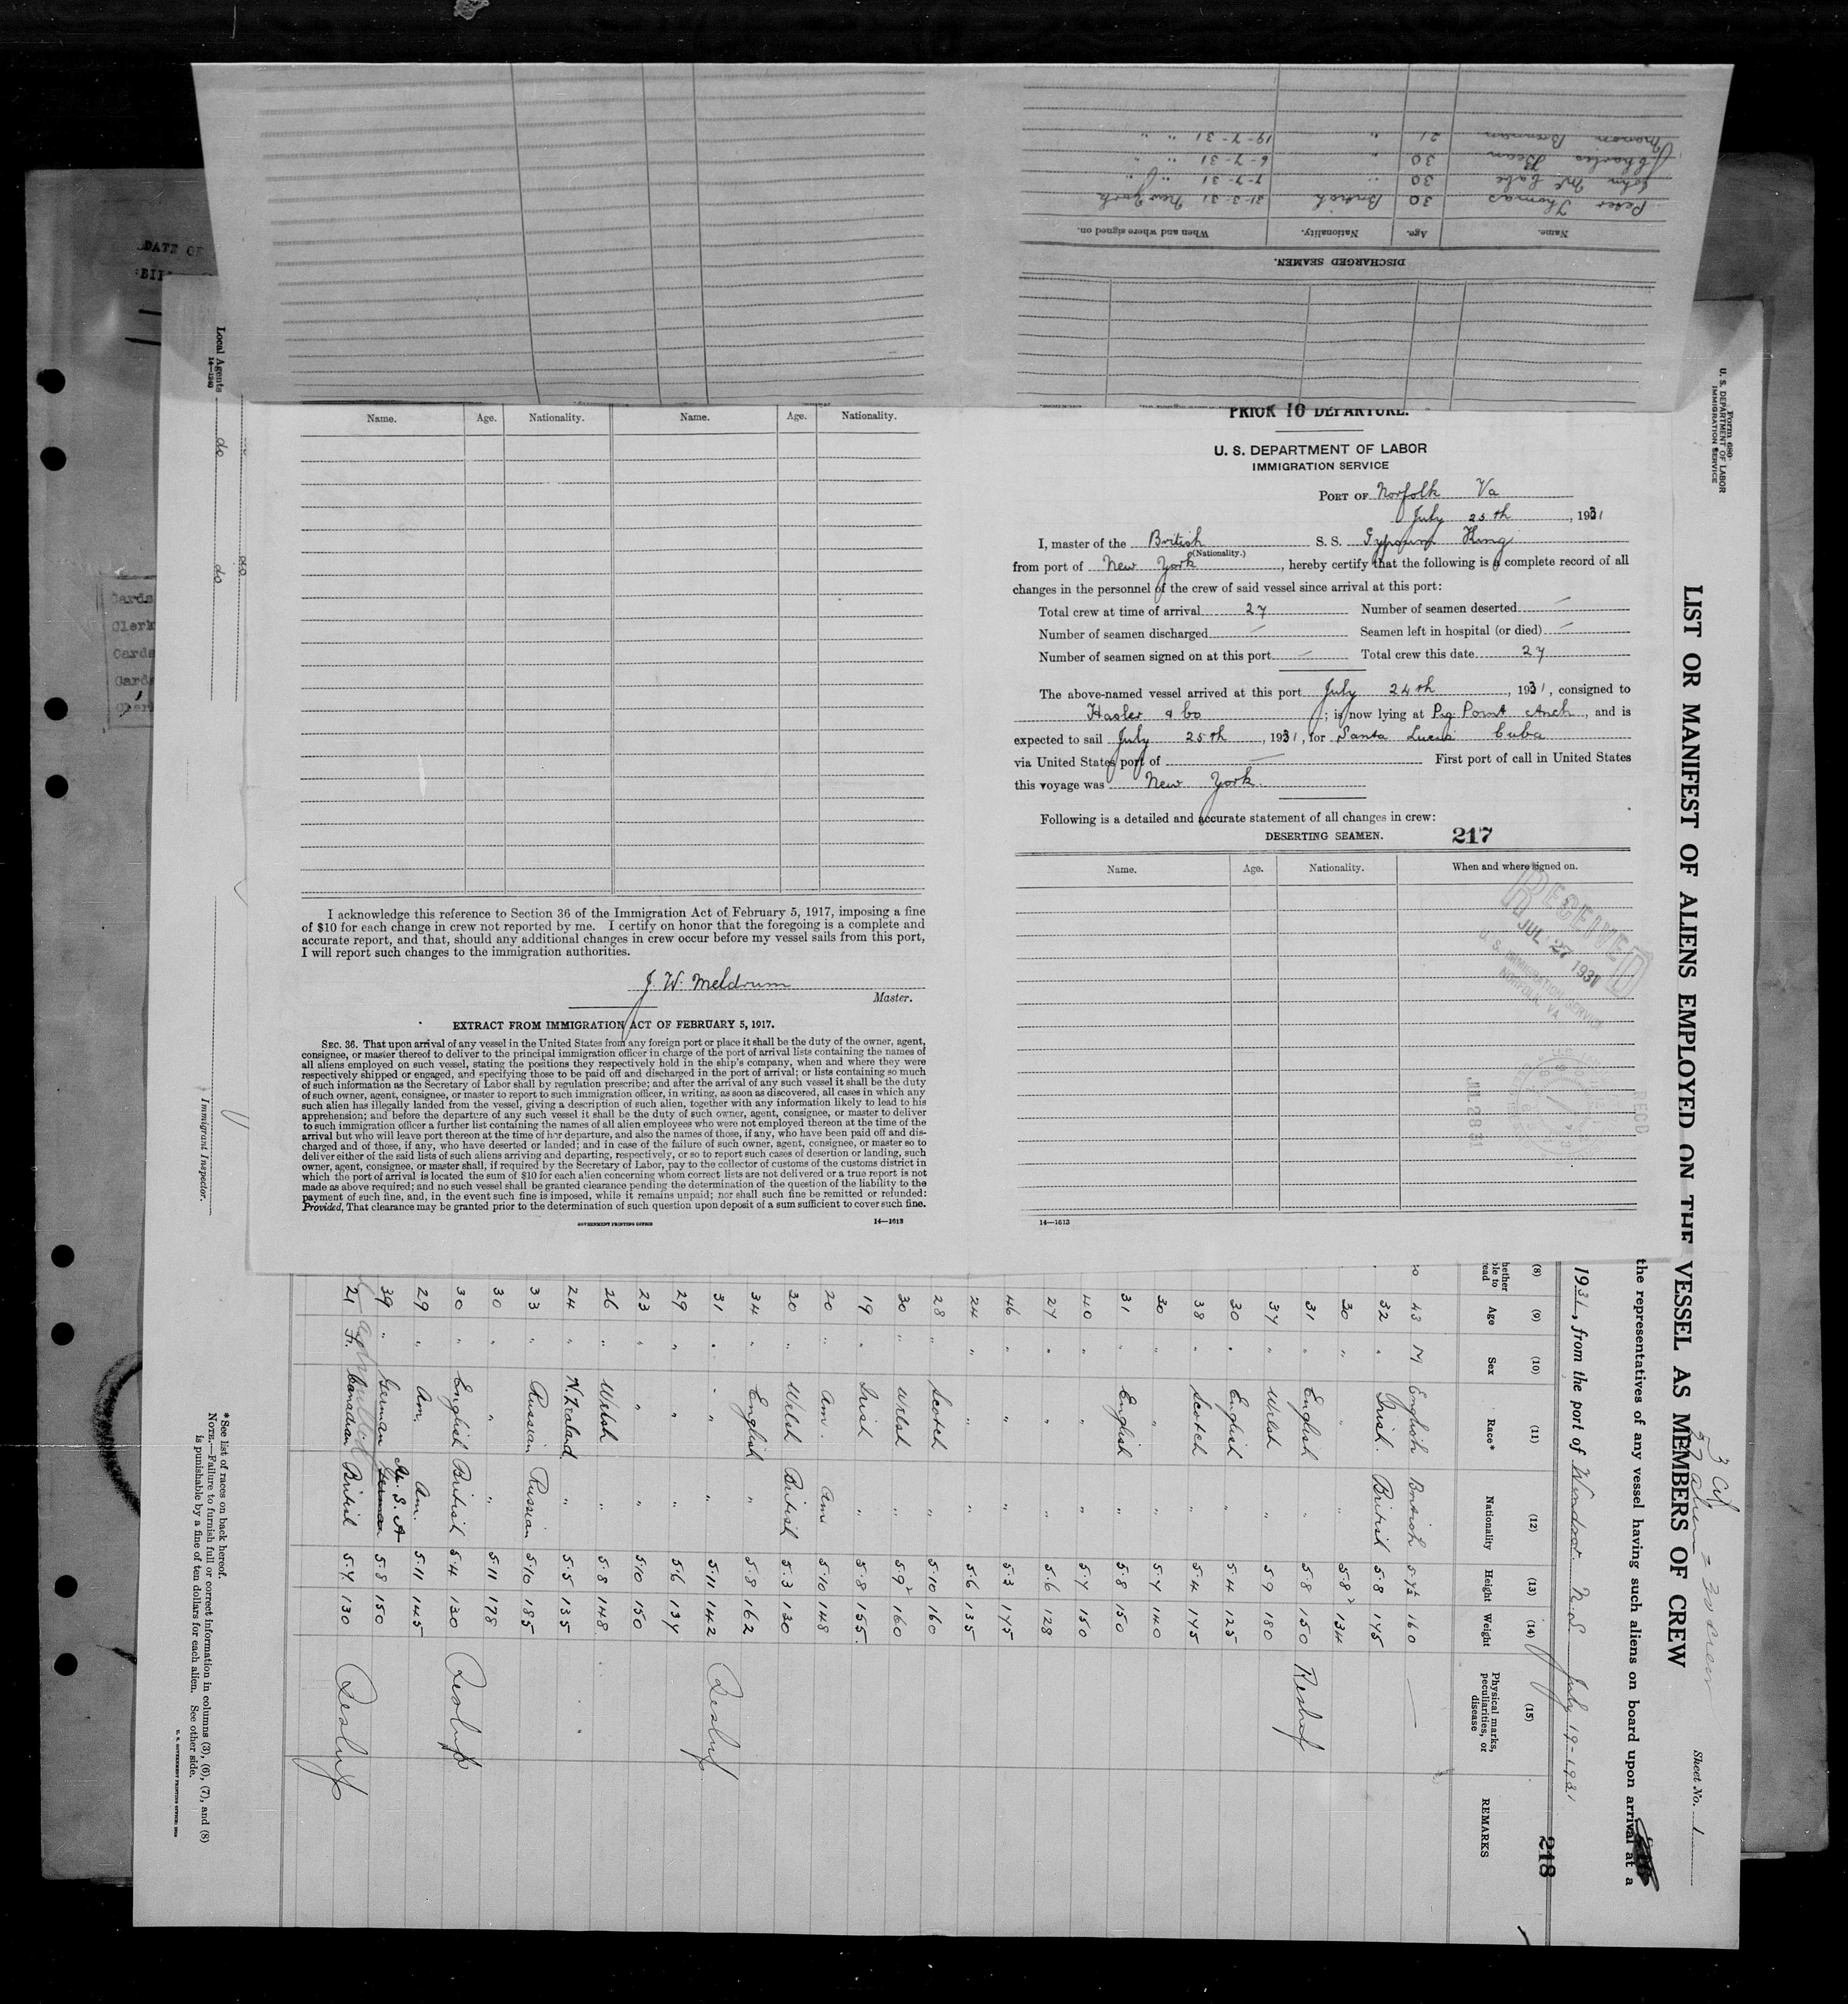 DISCHARGED SEAMEN.
Name. Age. Nationality. When and where signed on.
Peter Thomas 30 British 31-3-31 New York
John McCabe 30 " 7-7-31 " "
Charles Bean 30 " 6-7-31 " "
Brennan 21 " 19-7-31 " "
DATE OF
Cards
Clerk
Cards
Cards
Local Agents
14—1240
do
do
do
Immigrant Inspector.
Name. Age. Nationality. Name. Age. Nationality.
I acknowledge this reference to Section 36 of the Immigration Act of February 5, 1917, imposing a fine
of $10 for each change in crew not reported by me. I certify on honor that the foregoing is a complete and
accurate report, and that, should any additional changes in crew occur before my vessel sails from this port,
I will report such changes to the immigration authorities.
J. W. Meldrum
Master.
EXTRACT FROM IMMIGRATION ACT OF FEBRUARY 5, 1917.
SEC. 36. That upon arrival of any vessel in the United States from any foreign port or place it shall be the duty of the owner, agent,
consignee, or master thereof to deliver to the principal immigration officer in charge of the port of arrival lists containing the names of
all aliens employed on such vessel, stating the positions they respectively hold in the ship's company, when and where they were
respectively shipped or engaged, and specifying those to be paid off and discharged in the port of arrival; or lists containing so much
of such information as the Secretary of Labor shall by regulation prescribe; and after the arrival of any such vessel it shall be the duty
of such owner, agent, consignee, or master to report to such immigration officer, in writing, as soon as discovered, all cases in which any
such alien has illegally landed from the vessel, giving a description of such alien, together with any information likely to lead to his
apprehension; and before the departure of any such vessel it shall be the duty of such owner, agent, consignee, or master to deliver
to such immigration officer a further list containing the names of all alien employees who were not employed thereon at the time of the
arrival but who will leave port thereon at the time of her departure, and also the names of those, if any, who have been paid off and dis-
charged and of those, if any, who have deserted or landed; and in case of the failure of such owner, agent, consignee, or master so to
deliver either of the said lists of such aliens arriving and departing, respectively, or so to report such cases of desertion or landing, such
owner, agent, consignee, or master shall, if required by the Secretary of Labor, pay to the collector of customs of the customs district in
which the port of arrival is located the sum of $10 for each alien concerning whom correct lists are not delivered or a true report is not
made as above required; and no such vessel shall be granted clearance pending the determination of the question of the liability to the
payment of such fine, and, in the event such fine is imposed, while it remains unpaid; nor shall such fine be remitted or refunded:
Provided, That clearance may be granted prior to the determination of such question upon deposit of a sum sufficient to cover such fine.
GOVERNMENT PRINTING OFFICE 14—1613
PRIOR TO DEPARTURE.
U. S. DEPARTMENT OF LABOR
IMMIGRATION SERVICE
PORT OF Norfolk Va
July 25th, 1931
I, master of the British S. S. Gypsum King
(Nationality.)
from port of New York, hereby certify that the following is a complete record of all
changes in the personnel of the crew of said vessel since arrival at this port:
Total crew at time of arrival 27 Number of seamen deserted —
Number of seamen discharged — Seamen left in hospital (or died) —
Number of seamen signed on at this port — Total crew this date 27
The above-named vessel arrived at this port July 24th, 1931, consigned to
Hasler & Co; is now lying at Pig Point Anch, and is
expected to sail July 25th, 1931, for Santa Lucia Cuba
via United States port of — First port of call in United States
this voyage was New York.
Following is a detailed and accurate statement of all changes in crew:
DESERTING SEAMEN. 217
Name. Age. Nationality. When and where signed on.
RECEIVED
JUL 27 1931
U. S. IMMIGRATION SERVICE
NORFOLK, VA.
REC'D
JUL 28 31
14—1613
Form 680
U. S. DEPARTMENT OF LABOR
IMMIGRATION SERVICE
Sheet No. 1
LIST OR MANIFEST OF ALIENS EMPLOYED ON THE VESSEL AS MEMBERS OF CREW
the representatives of any vessel having such aliens on board upon arrival at a
1931, from the port of Windsor N.S. July 19-1931
218
(8) (9) (10) (11) (12) (13) (14) (15)
Age Sex Race* Nationality Height Weight Physical marks, peculiarities, or disease REMARKS
43 M English British 5.7½ 160 —
32 " Irish British 5.8 175
20 " " " 5.8² 134
31 " English " 5.8 150
37 " Welsh " 5.9 180
30 " English " 5.4 125
38 " Scotch " 5.4 175
30 " " " 5.7 140
31 " English " 5.8 150
40 " " " 5.7 150
27 " " " 5.6 128
46 " " " 5.3 175
24 " " " 5.6 135
28 " Scotch " 5.10 160
30 " Welsh " 5.9² 160
19 " Irish " 5.8 155
20 " Am. Am 5.10 148
20 " Welsh British 5.3 130
34 " English " 5.8 162
31 " " " 5.11 142
29 " " " 5.6 137
23 " " " 5.10 150
26 " Welsh " 5.8 148
24 " N. Zealand " 5.5 135
33 " Russian Russian 5.10 185
30 " " " 5.11 178
30 " English British 5.4 130
29 " Am. Am. 5.11 145
39 " German German U.S.A 5.8 150
21 " Fr. Canadian British 5.7 130
*See list of races on back hereof.
NOTE.—Failure to furnish full or correct information in columns (3), (6), (7), and (8)
is punishable by a fine of ten dollars for each alien. See other side.
U. S. GOVERNMENT PRINTING OFFICE